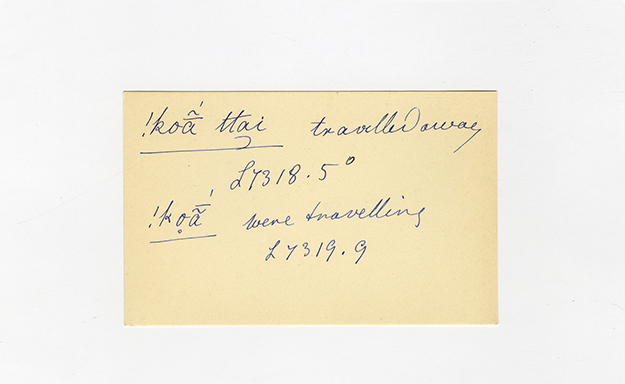 !kõā́ ttai travelled away
L7318.5°
!kọã́ were travelling
L7319.9